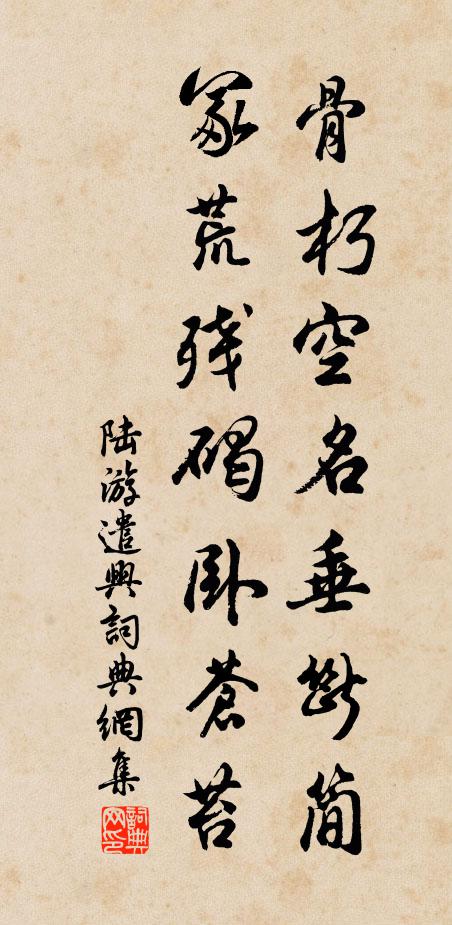 骨朽空名垂断简
冢荒残碣卧苍苔
陆游遣興詞典網集
詞典网印